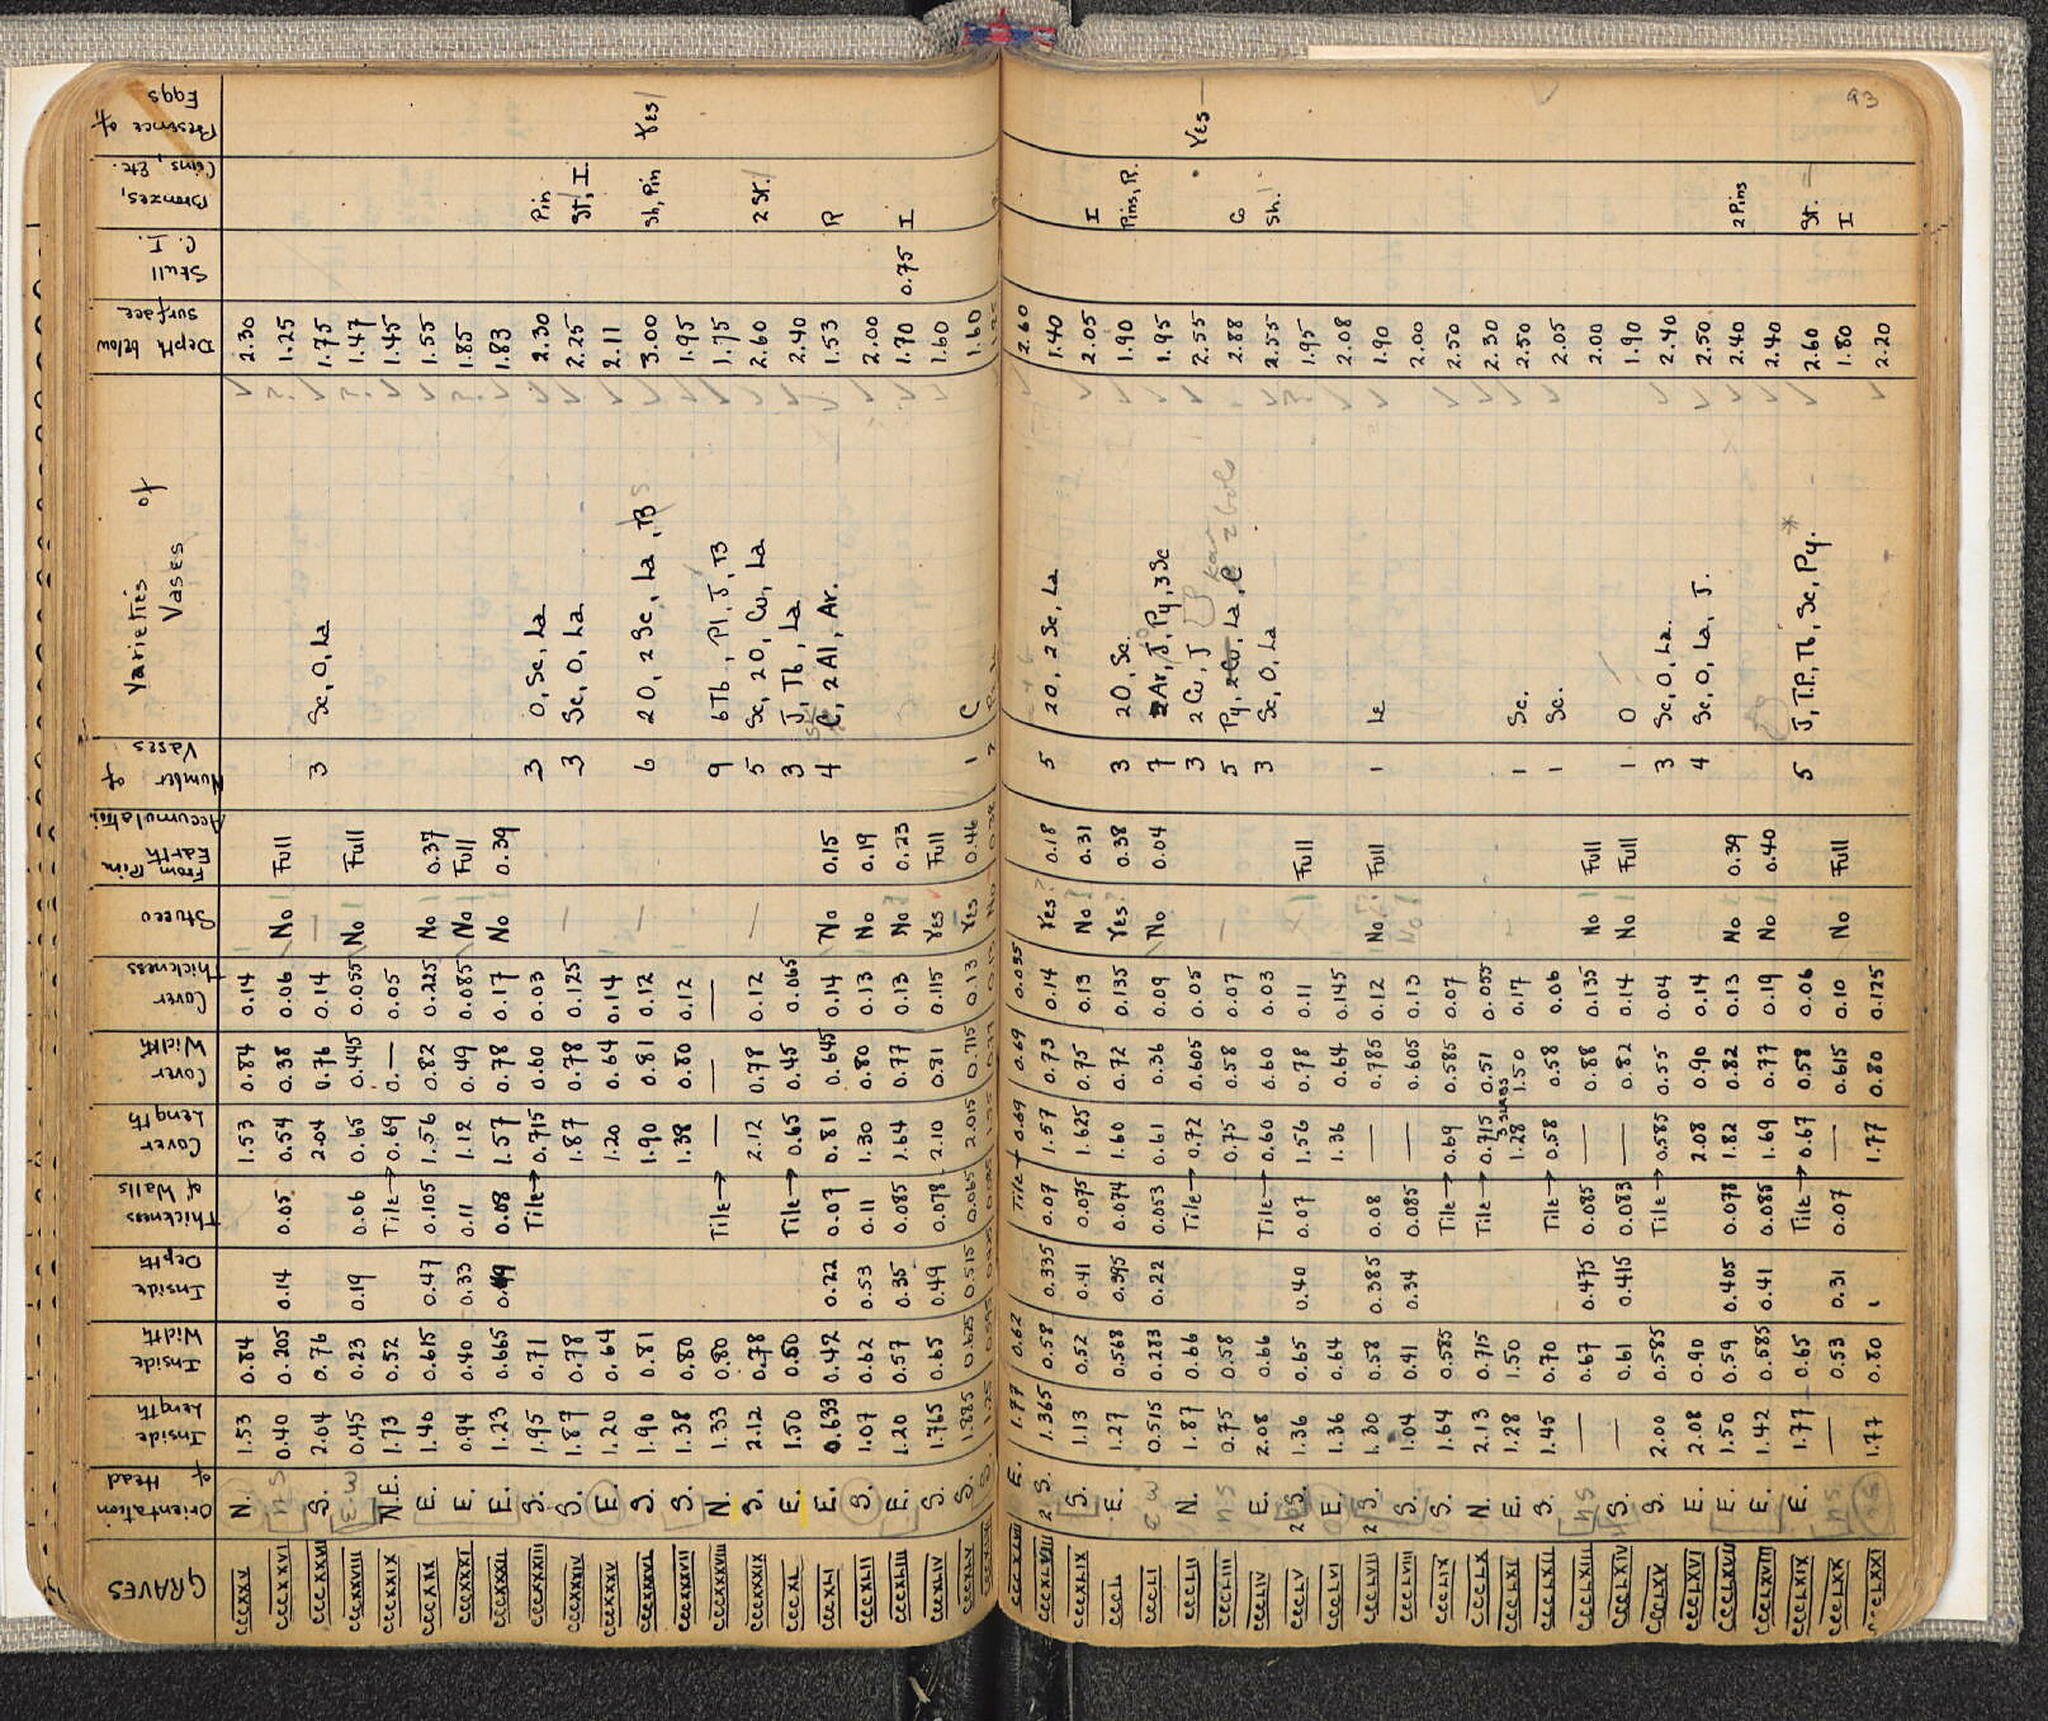 93
GRAVES | Orientation of Head | Inside Length | Inside Width | Inside Depth | Thickness of Walls | Cover Length | Cover Width | Cover Thickness | Stucco | Earth Accumulation From Rim | Number of Vases | Varieties of Vases | Depth below Surface | Skull C. I. | Bronzes, Coins, Etc. | Presence of Eggs
CCCXXV N. 1.53 0.84 1.53 0.84 0.14 2.30
CCCXXVI N S 0.40 0.205 0.14 0.05 0.54 0.38 0.06 No Full 1.25
CCCXXVII S. 2.04 0.76 2.04 0.76 0.14 — 3 Sc, O, La 1.75
CCCXXVIII E W 0.45 0.23 0.19 0.06 0.65 0.445 0.055 No Full 1.47
CCCXXIX N.E. 1.73 0.52 Tile → 0.69 0.— 0.05 1.45
CCCXXX E. 1.40 0.615 0.47 0.105 1.56 0.82 0.225 No 0.37 1.55
CCCXXXI E. 0.94 0.40 0.33 0.11 1.12 0.49 0.085 No Full 1.85
CCCXXXII E. 1.23 0.665 0.49 0.08 1.57 0.78 0.17 No 0.39 1.83
CCCXXXIII S. 1.95 0.71 Tile → 0.715 0.60 0.03 3 O, Sc, La 2.30 Pin
CCCXXXIV S. 1.87 0.78 1.87 0.78 0.125 — 3 Sc, O, La 2.25 St, I.
CCCXXXV E. 1.20 0.64 1.20 0.64 0.14 2.11
CCCXXXVI S. 1.90 0.81 1.90 0.81 0.12 — 6 2 O, 2 Sc, La, B S 3.00 Sh, Pin Yes
CCCXXXVII S. 1.38 0.80 1.38 0.80 0.12 1.95
CCCXXXVIII N. 1.33 0.80 Tile → — — — 9 6 Tb, Pl, J, B 1.75
CCCXXXIX S. 2.12 0.78 2.12 0.78 0.12 — 5 Sc, 2 O, Cu, La 2.60 2 St.
CCCXL E. 1.50 0.50 Tile → 0.65 0.45 0.065 3 J, Tb, La 2.40
CCCXLI E. 0.633 0.42 0.22 0.07 0.81 0.645 0.14 No 0.15 4 C, 2 Al, Ar. 1.53 R
CCCXLII S. 1.07 0.62 0.53 0.11 1.30 0.80 0.13 No 0.19 2.00
CCCXLIII E. 1.20 0.57 0.35 0.085 1.64 0.77 0.13 No 0.23 1.70 0.75 I
CCCXLIV S. 1.765 0.65 0.49 0.078 2.10 0.81 0.115 Yes Full 1.60
CCCXLV S. 1.885 0.625 0.515 0.065 2.015 0.715 0.13 Yes 0.46 1 C 1.60
CCCXLVII E. 1.77 0.62 Tile → 0.69 0.69 0.055 2.60
CCCXLVIII 2 S. 1.365 0.58 0.335 0.07 1.57 0.73 0.14 Yes? 0.18 5 2 O, 2 Sc, La 1.40
CCCXLIX S. 1.13 0.52 0.41 0.075 1.625 0.75 0.13 No 0.31 2.05 I
CCCL E. 1.27 0.568 0.395 0.074 1.60 0.72 0.135 Yes 0.38 3 2 O, Sc. 1.90 Pins, R.
CCCLI E W 0.515 0.283 0.22 0.053 0.61 0.36 0.09 No 0.04 7 2 Ar, J, Py, 3 Sc 1.95
CCCLII N. 1.87 0.66 Tile → 0.72 0.605 0.05 3 2 Cu, J 2.55 Yes —
CCCLIII N S 0.75 0.58 0.75 0.58 0.07 — 5 Py, 2 Cu, La, C 2.88 G
CCCLIV E. 2.08 0.66 Tile → 0.60 0.60 0.03 3 Sc, O, La 2.55 Sh.
CCCLV 2 S. 1.36 0.65 0.40 0.07 1.56 0.78 0.11 Full 1.95
CCCLVI E. 1.36 0.64 1.36 0.64 0.145 2.08
CCCLVII 2 S. 1.30 0.58 0.385 0.08 — 0.785 0.12 No Full 1 Le 1.90
CCCLVIII S. 1.04 0.41 0.34 0.085 — 0.605 0.13 No 2.00
CCCLIX S. 1.64 0.585 Tile → 0.69 0.585 0.07 2.50
CCCLX N. 2.13 0.715 Tile → 0.715 0.51 0.055 2.30
CCCLXI E. 1.28 1.50 3 SLABS 1.28 1.50 0.17 1 Sc. 2.50
CCCLXII S. 1.45 0.70 Tile → 0.58 0.58 0.06 1 Sc. 2.05
CCCLXIII N S — 0.67 0.475 0.085 — 0.88 0.135 No Full 2.00
CCCLXIV S. — 0.61 0.415 0.083 — 0.82 0.14 No Full 1 O 1.90
CCCLXV S. 2.00 0.585 Tile → 0.585 0.55 0.04 3 Sc, O, La. 2.40
CCCLXVI E. 2.08 0.90 2.08 0.90 0.14 4 Sc, O, La, J. 2.50
CCCLXVII E. 1.50 0.59 0.405 0.078 1.82 0.82 0.13 No 0.39 2.40 2 Pins
CCCLXVIII E. 1.42 0.585 0.41 0.085 1.69 0.77 0.19 No 0.40 2.40
CCCLXIX E. 1.77 0.65 Tile → 0.67 0.58 0.06 5 J, T.P., Tb, Sc, Py. * 2.60 St.
CCCLXX N S — 0.53 0.31 0.07 — 0.615 0.10 No Full 1.80 I
CCCLXXI 1.77 0.80 1.77 0.80 0.125 2.20